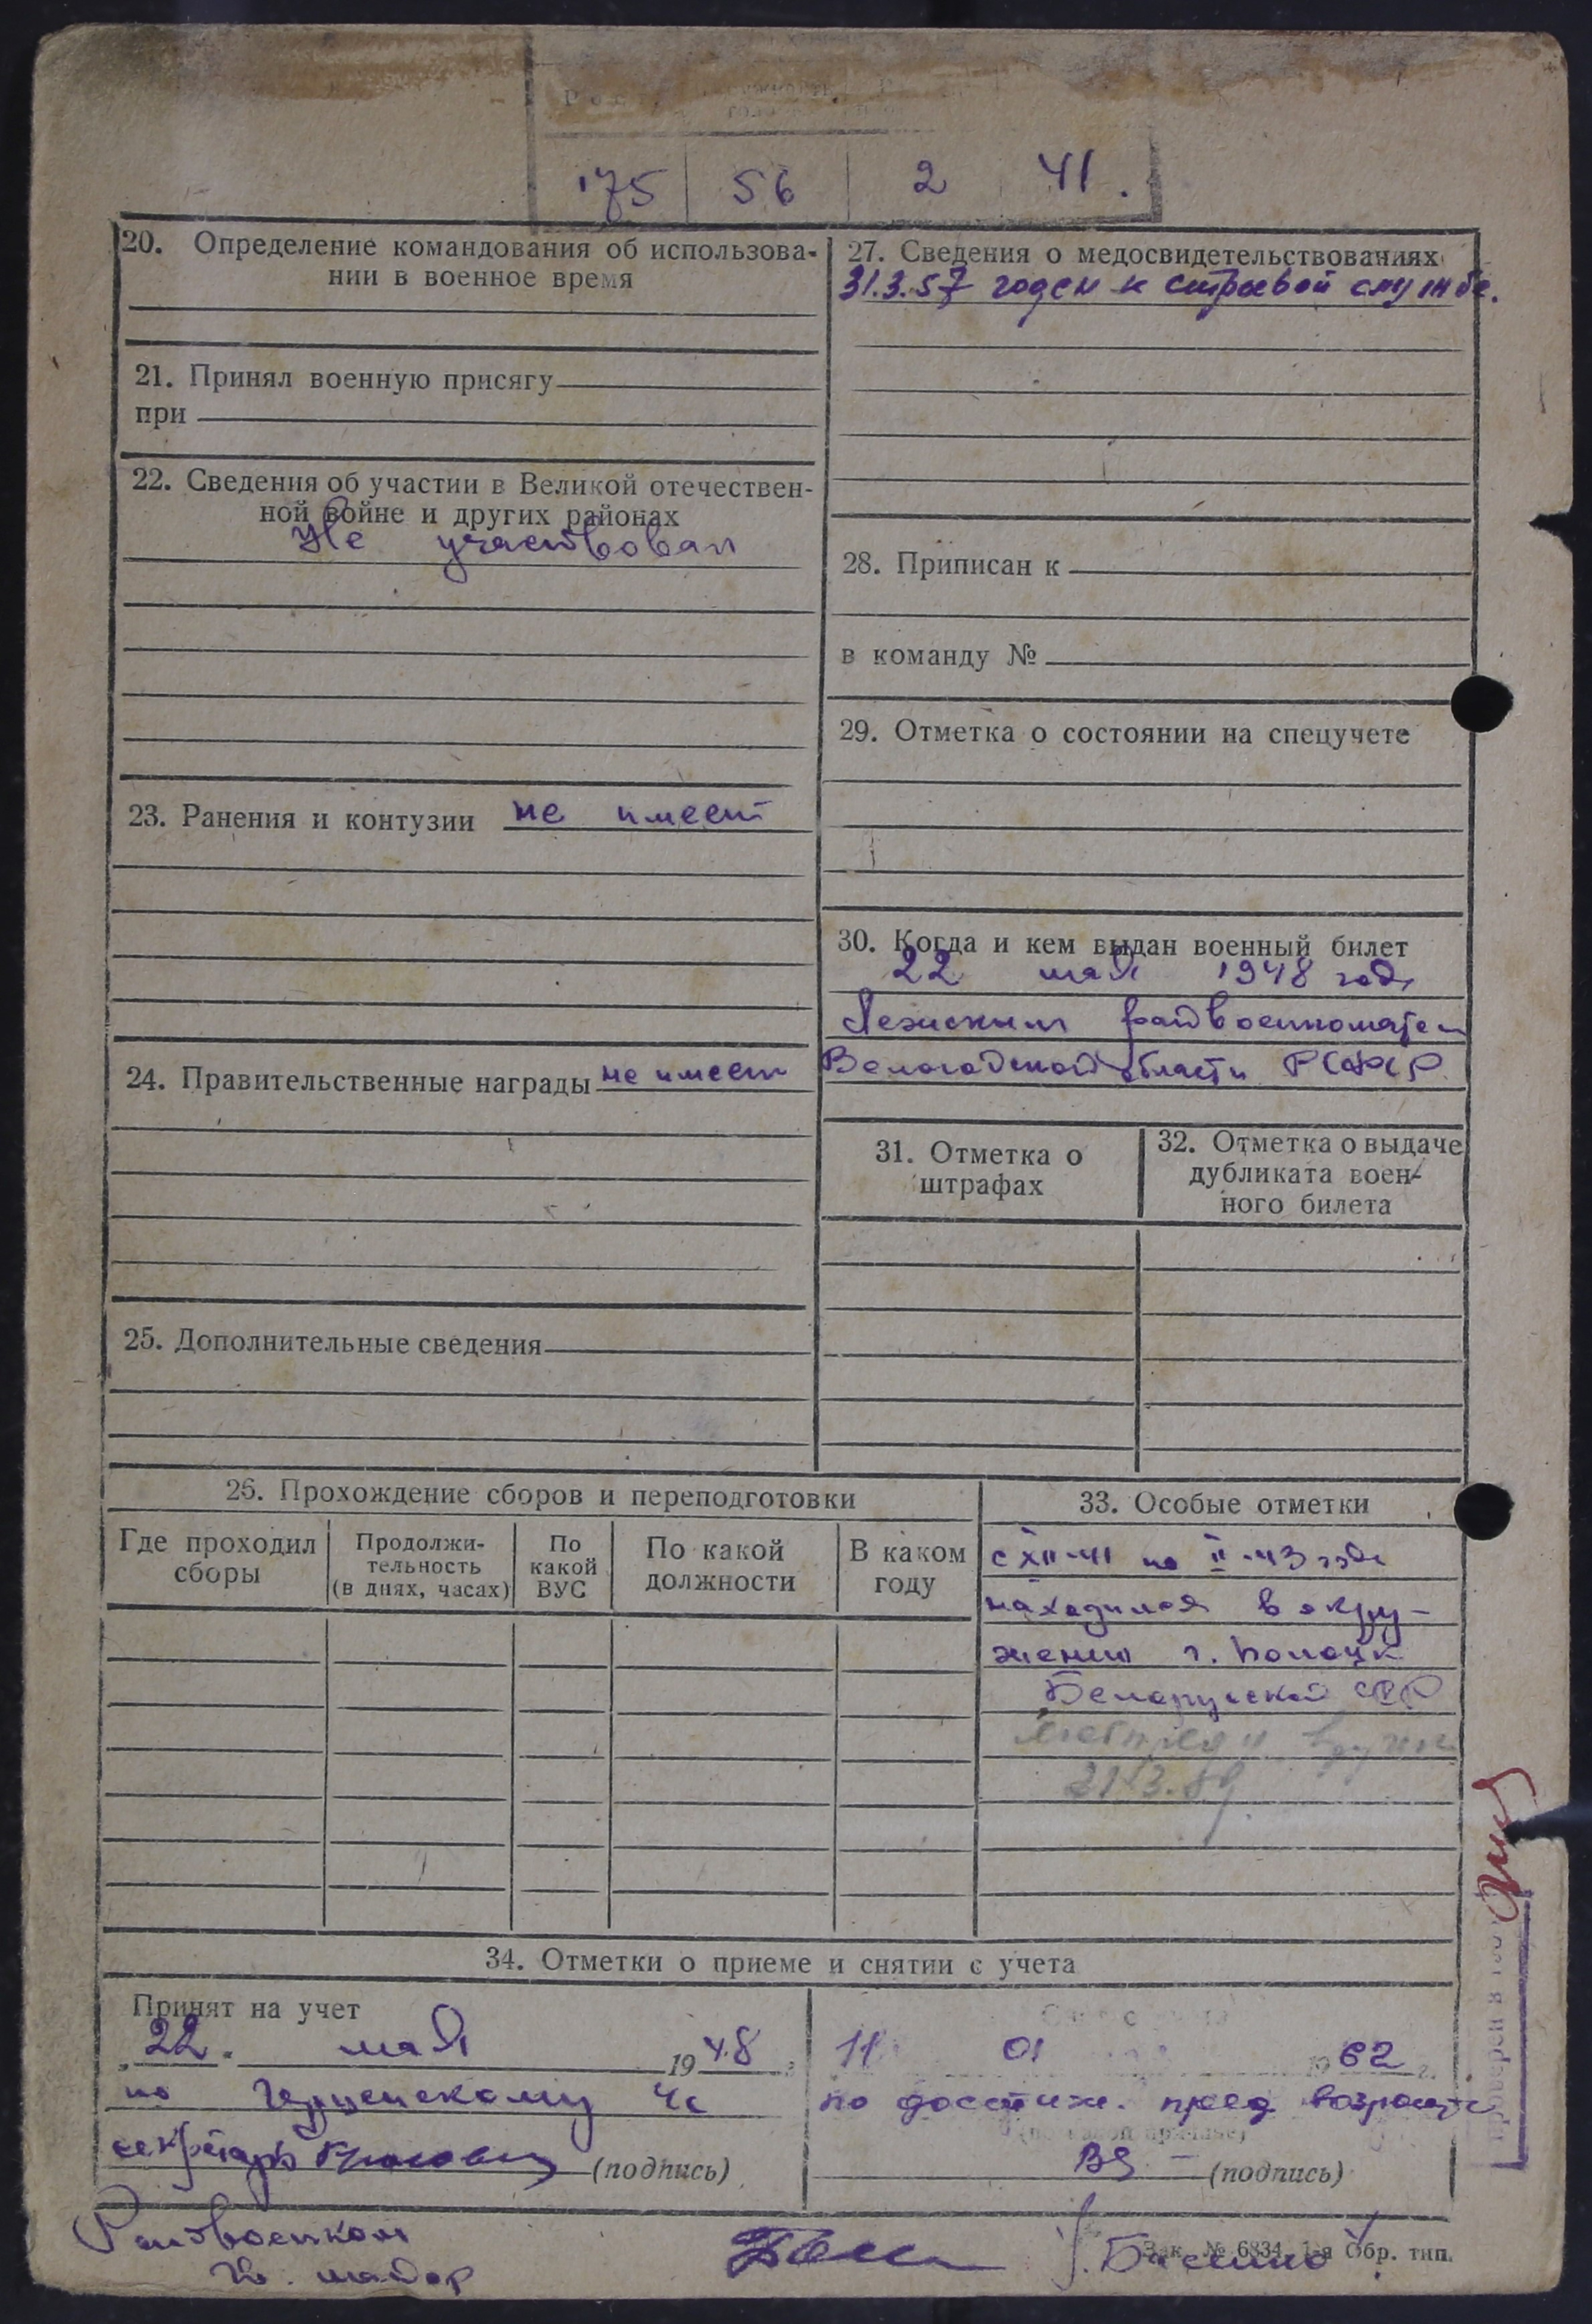 175 56 2 41.
20. Определение командования об использова-
нии в военное время
21. Принял военную присягу
при
22. Сведения об участии в Великой отечествен-
ной войне и других районах
Не участвовал
23. Ранения и контузии не имеет
24. Правительственные награды не имеет
25. Дополнительные сведения
27. Сведения о медосвидетельствованиях
31.3.57 годен к строевой службе.
28. Приписан к
в команду №
29. Отметка о состоянии на спецучете
30. Когда и кем выдан военный билет
22 мая 1948 года
райвоенкоматом
Вологодской области РСФСР
31. Отметка о
штрафах
32. Отметка о выдаче
дубликата воен-
ного билета
26. Прохождение сборов и переподготовки
Где проходил
сборы
Продолжи-
тельность
(в днях, часах)
По
какой
ВУС
По какой
должности
В каком
году
33. Особые отметки
с XII-41 по II-43 года
находился в окру-
жении г. Полоцк
Белорусской ССР
34. Отметки о приеме и снятии с учета
Принят на учет
22. мая 1948 г.
по
секретарь (подпись)
11 01 1962 г.
по достиж. пред возраста
(подпись)
Райвоенком
майор
Зак. № 6834, 1-я Обр. тип.